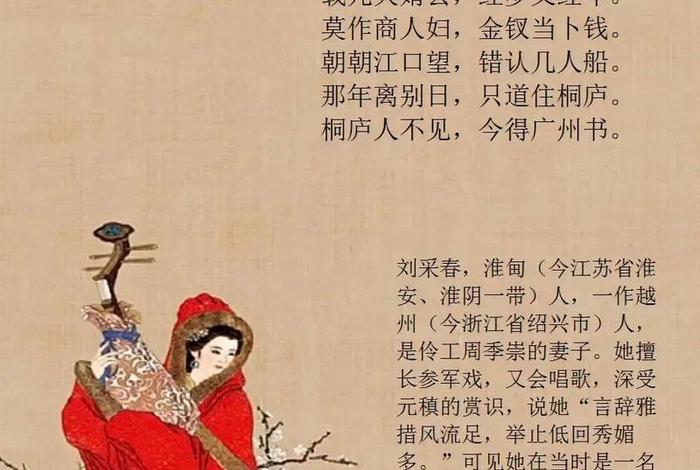 莫作商人妇，金钗当卜钱。
朝朝江口望，错认几人船。
那年离别日，只道住桐庐。
桐庐人不见，今得广州书。
刘采春，淮甸（今江苏省淮
安、淮阴一带）人，一作越
州（今浙江省绍兴市）人，
是伶工周季崇的妻子。她擅
长参军戏，又会唱歌，深受
元稹的赏识，说她“言辞雅
措风流足，举止低回秀媚
多。”可见她在当时是一名